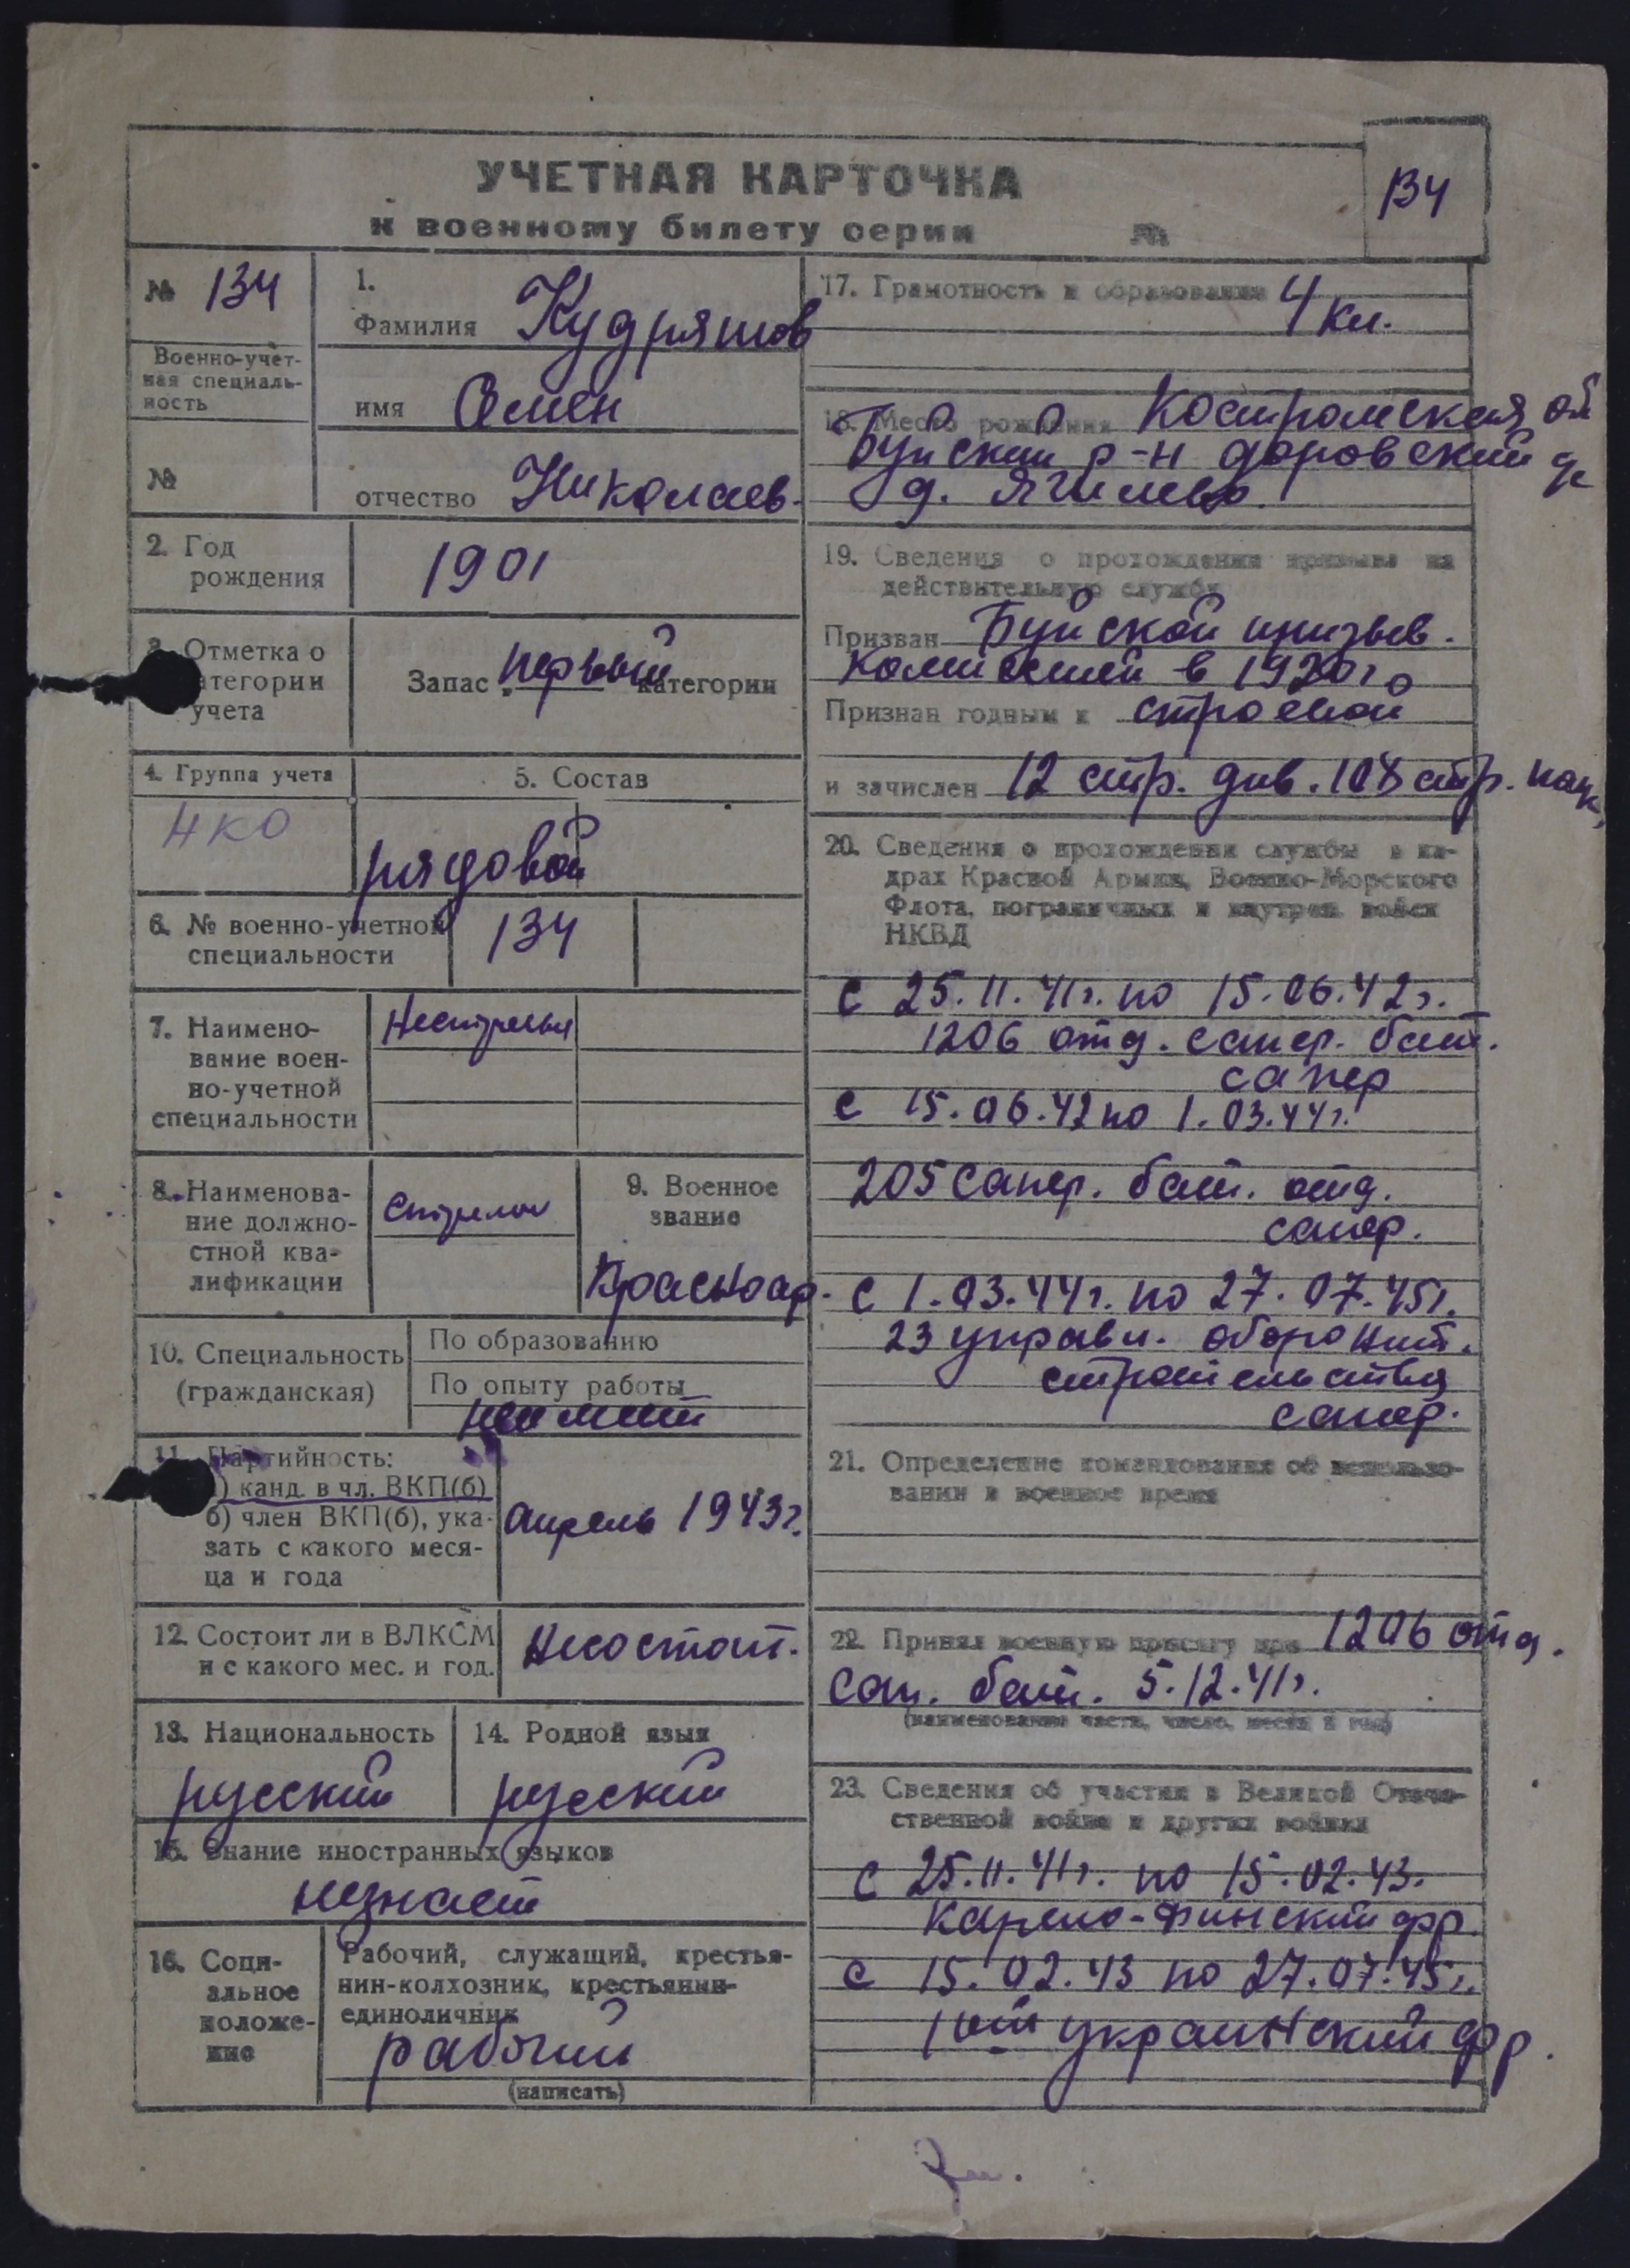 УЧЕТНАЯ КАРТОЧКА
к военному билету серии №
134
№ 134
Военно-учет-
ная специаль-
ность
№
1.
Фамилия Кудряшов
имя Семен
отчество Николаев.
2. Год
рождения
1901
3. Отметка о
категории
учета
Запас первый категории
4. Группа учета
НКО
5. Состав
рядовой
6. № военно-учетной
специальности
134
7. Наимено-
вание воен-
но-учетной
специальности
8. Наименова-
ние должно-
стной ква-
лификации
стрелок
9. Военное
звание
Красноар.
10. Специальность
(гражданская)
По образованию
По опыту работы
неимеет
11. Партийность:
а) канд. в чл. ВКП(б)
б) член ВКП(б), ука-
зать с какого меся-
ца и года
апрель 1943г.
12. Состоит ли в ВЛКСМ
и с какого мес. и год.
Несостоит.
13. Национальность
русский
14. Родной язык
русский
15. Знание иностранных языков
незнает
16. Соци-
альное
положе-
ние
Рабочий, служащий, крестья-
нин-колхозник, крестьянин-
единоличник
рабочий
(написать)
17. Грамотность и образование 4 кл.
18. Место рождения Костромская об
Буйский р-н доровский
д. Ягилево.
19. Сведения о прохождении призыва на
действительную службу
Призван Буйской призыв.
комиссией в 1920г
Признан годным к строевой
и зачислен 12 стр. див. 108 стр. полк
20. Сведения о прохождении службы в ка-
драх Красной Армии, Военно-Морского
Флота, пограничных и внутрен. войск
НКВД
С 25.11.41г. по 15.06.42г.
1206 отд. сапер. бат.
сапер
С 15.06.42 по 1.03.44г.
205 сапер. бат. отд.
сапер.
С 1.03.44г. по 27.07.45г.
23 управл. оборонит.
строительства
сапер.
21. Определение командования об использо-
вании в военное время
22. Принял военную присягу при 1206 отд.
сап. бат. 5.12.41г.
(наименование части, число, месяц и год)
23. Сведения об участии в Великой Отече-
ственной войне и других войнах
С 25.11.41г. по 15.02.43.
Карело-Финский фр.
С 15.02.43 по 27.07.45г.
1ый украинский фр.